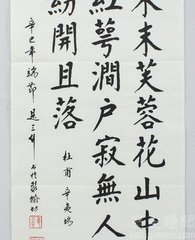 木末芙蓉花山中
紅萼澗戶寂無人
紛開且落
杜甫 辛夷塢
辛巳年端節